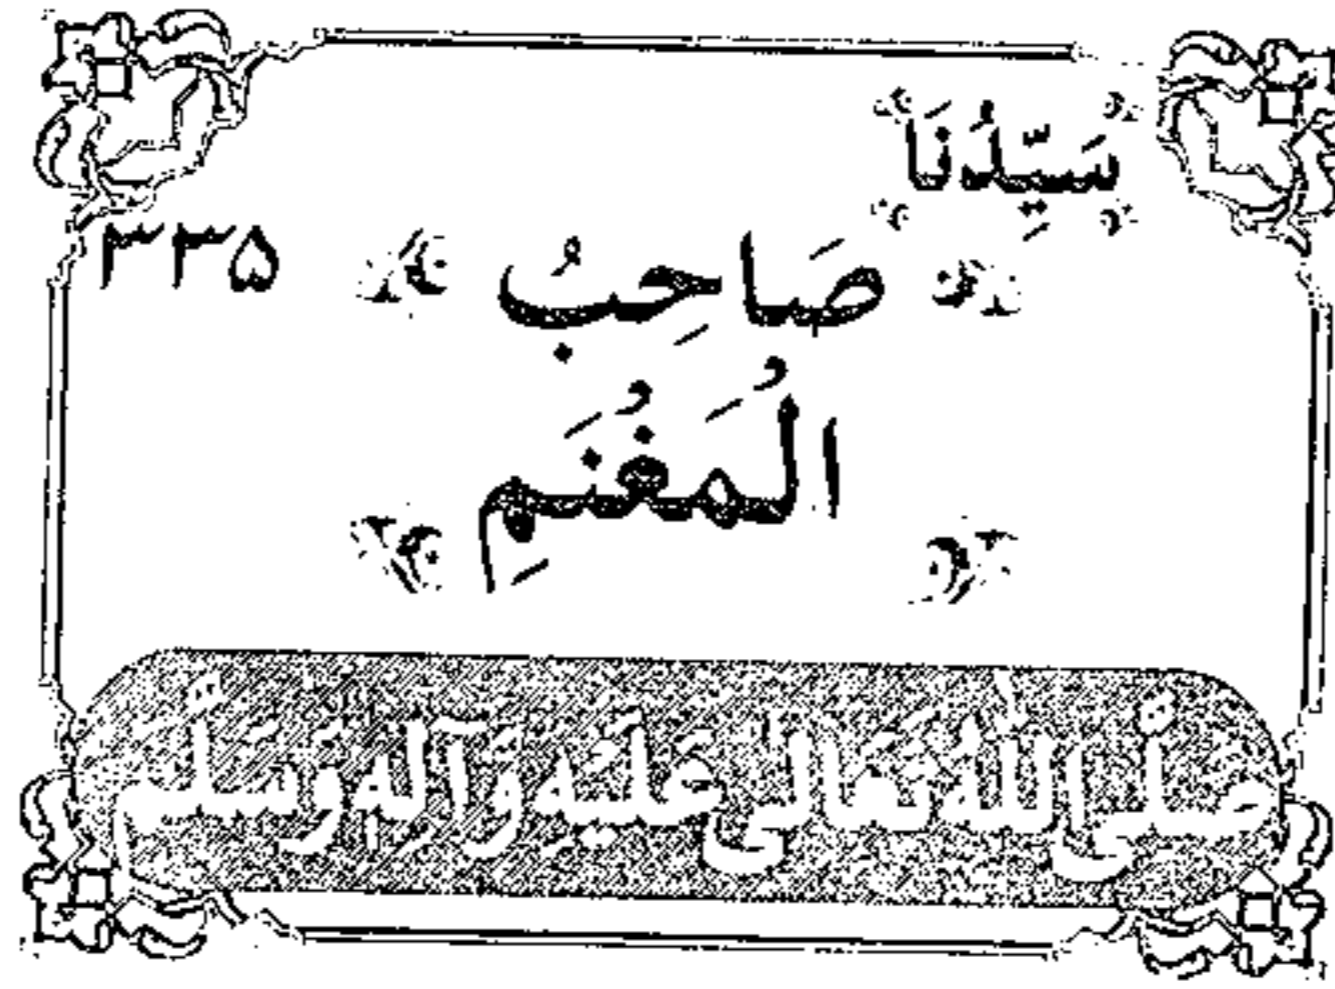 سَيِّدُنَا
صَاحِبُ ۳۳۵
الْمَغْنَمِ
صَلَّى اللّٰهُ تَعَالٰى عَلَيْهِ وَآلِهِ وَسَلَّم